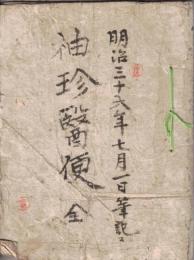 明治三十六年七月一日筆記
袖珍醫便 全